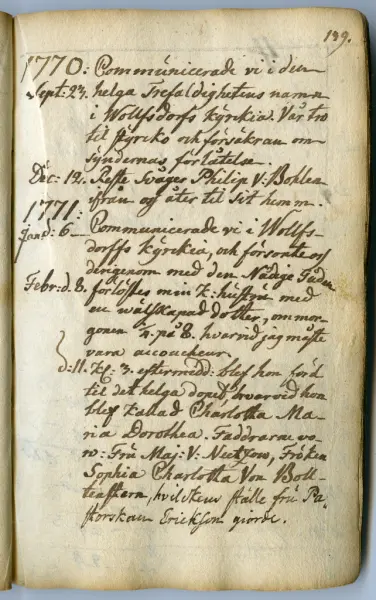 139.
1770: Communicerade vi i den
Sept: 23. helga Trefaldighetens namn
i Wollfsdorfs kyrkia. Vår tro
til styrko och försäkran om
syndernas förlåtelse.
Dec: 12. Reste Svåger Philip V: Bohlen
ifrån oss åter til sit hem.
1771:
Janr: 6_ Communicerade vi i Wollfs-
dorffs kyrkia, och försonte oss
derigenom med den Nådige Faden
Febr: d. 8. förlöstes min K: hustru med
en wälskapad dotter, om mor-
gonen 4 på 8. hvarvid jag måste
vara accoucheur.
d: 11. Kl: 3. eftermedd: blef hon förd
til det helga dopet, hvarvid hon
blef kallad Charlotta Ma-
ria Dorothea. Faddrarne vo-
ro: Fru Maj: V: Neetzow, Fröken
Sophia Charlotta Von Boll-
, hvilckens ställe fru Pa-
storskan Erickson giorde.